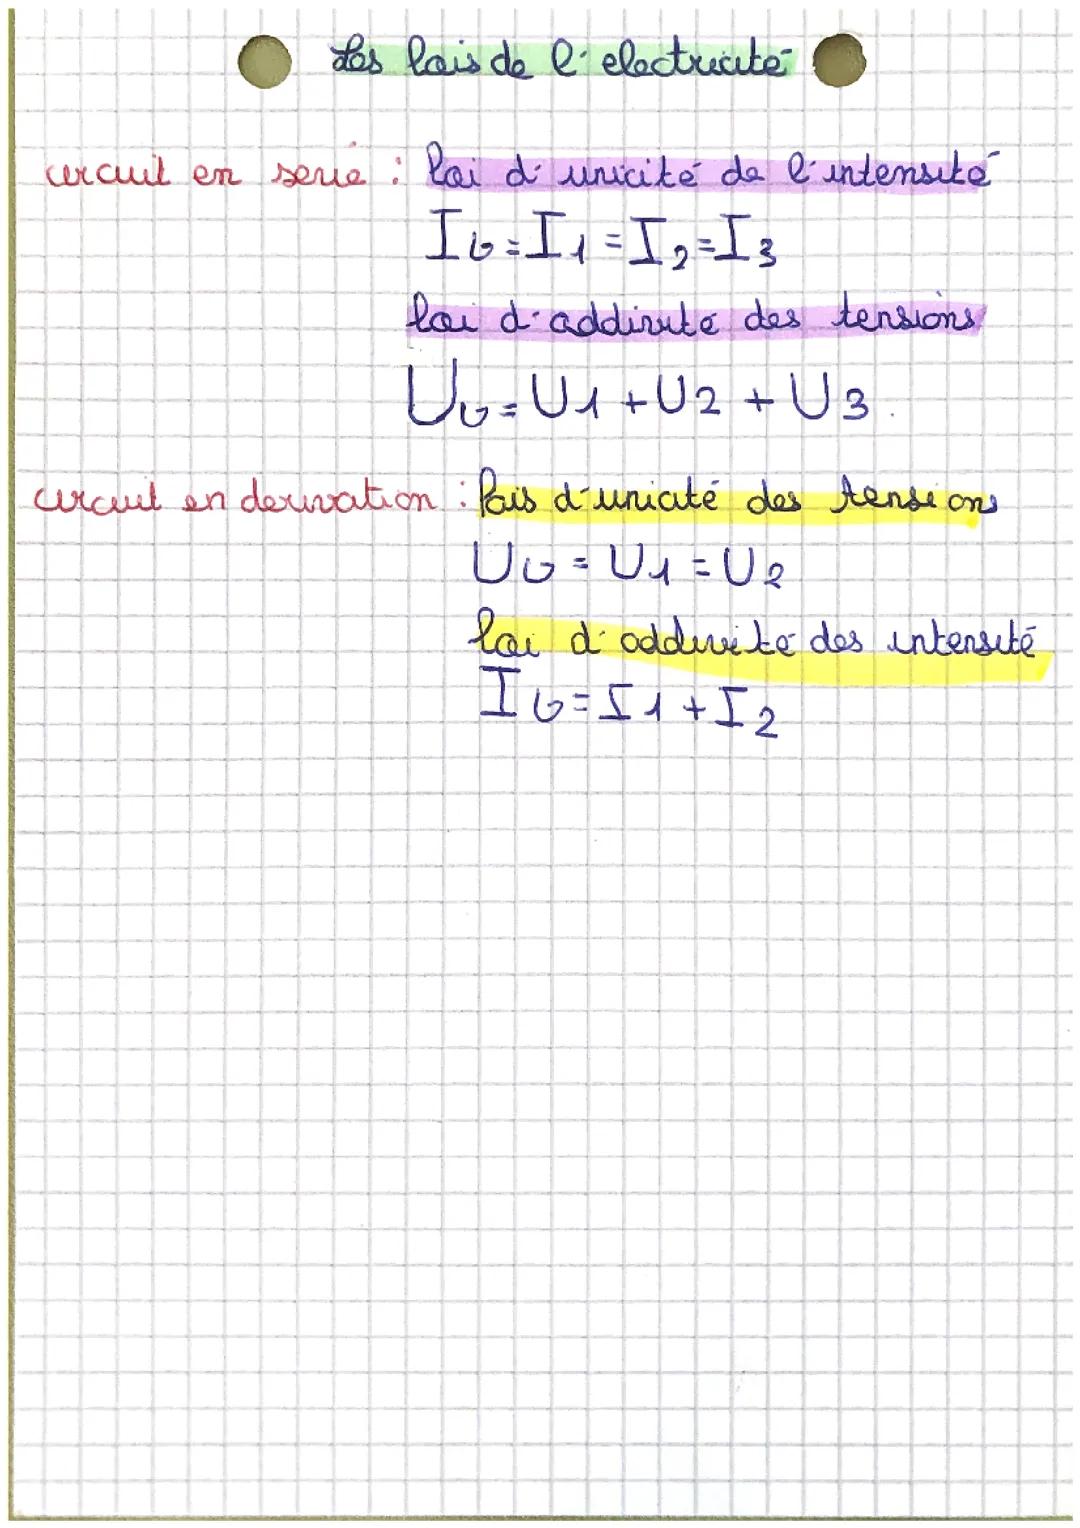 Les lois de l'electricité
circuit en serie : loi d'unicité de l'intensité
IG=I1=I2=I3
loi d'additivité des tensions
UG=U1+U2+U3
circuit en derivation : lois d'unicité des tensions
UG=U1=U2
loi d'additivité des intensité
IG=I1+I2